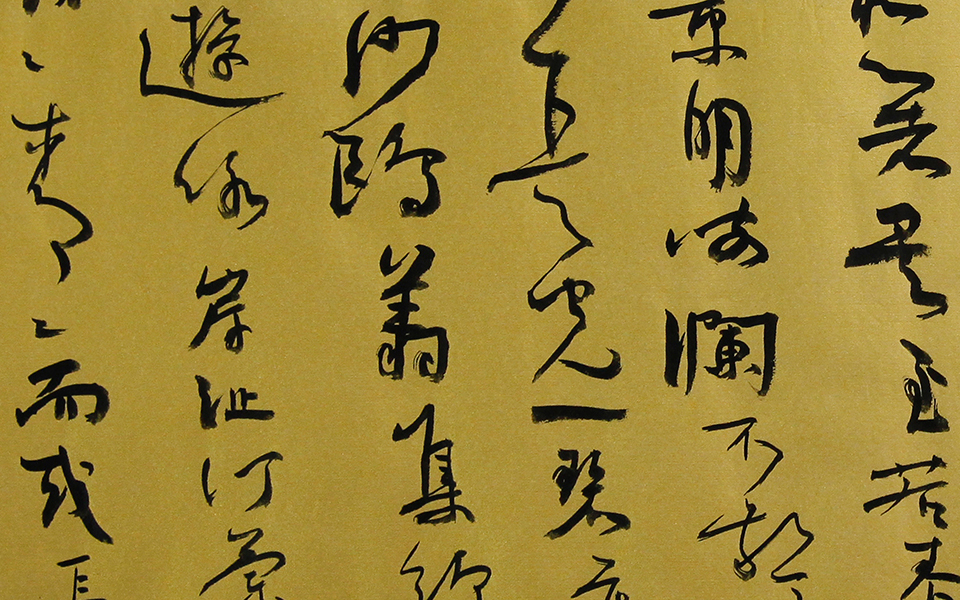 者矣至若春
景明波瀾不驚
上下天光一碧萬
沙鷗翔集錦
遊泳岸芷汀蘭
郁〻青〻而或長